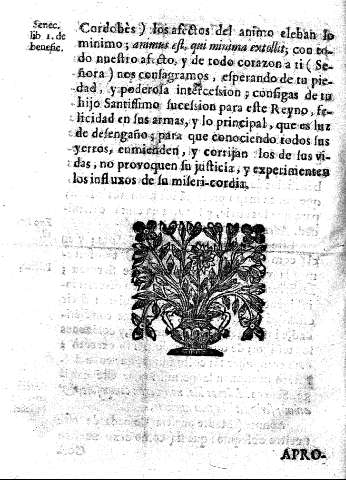 Senec.
lib 1. de
benefic.
Cordobès ) los afectos del animo eleban lo
minimo ; animus est, qui minima extollit; con to-
do nuestro afecto, y de todo corazon a ti ( Se-
ñora ) nos consagramos, esperando de tu pie-
dad, y poderosa intercession; consigas de tu
hijo Santissimo sucession para este Reyno, fe-
licidad en sus armas, y lo principal, que es luz
de desengaño; para que conociendo todos sus
yerros, enmienden, y corrijan los de sus vi-
das, no provoquen su justicia, y experimenten
los influxos de su miseri-cordia.
APRO-